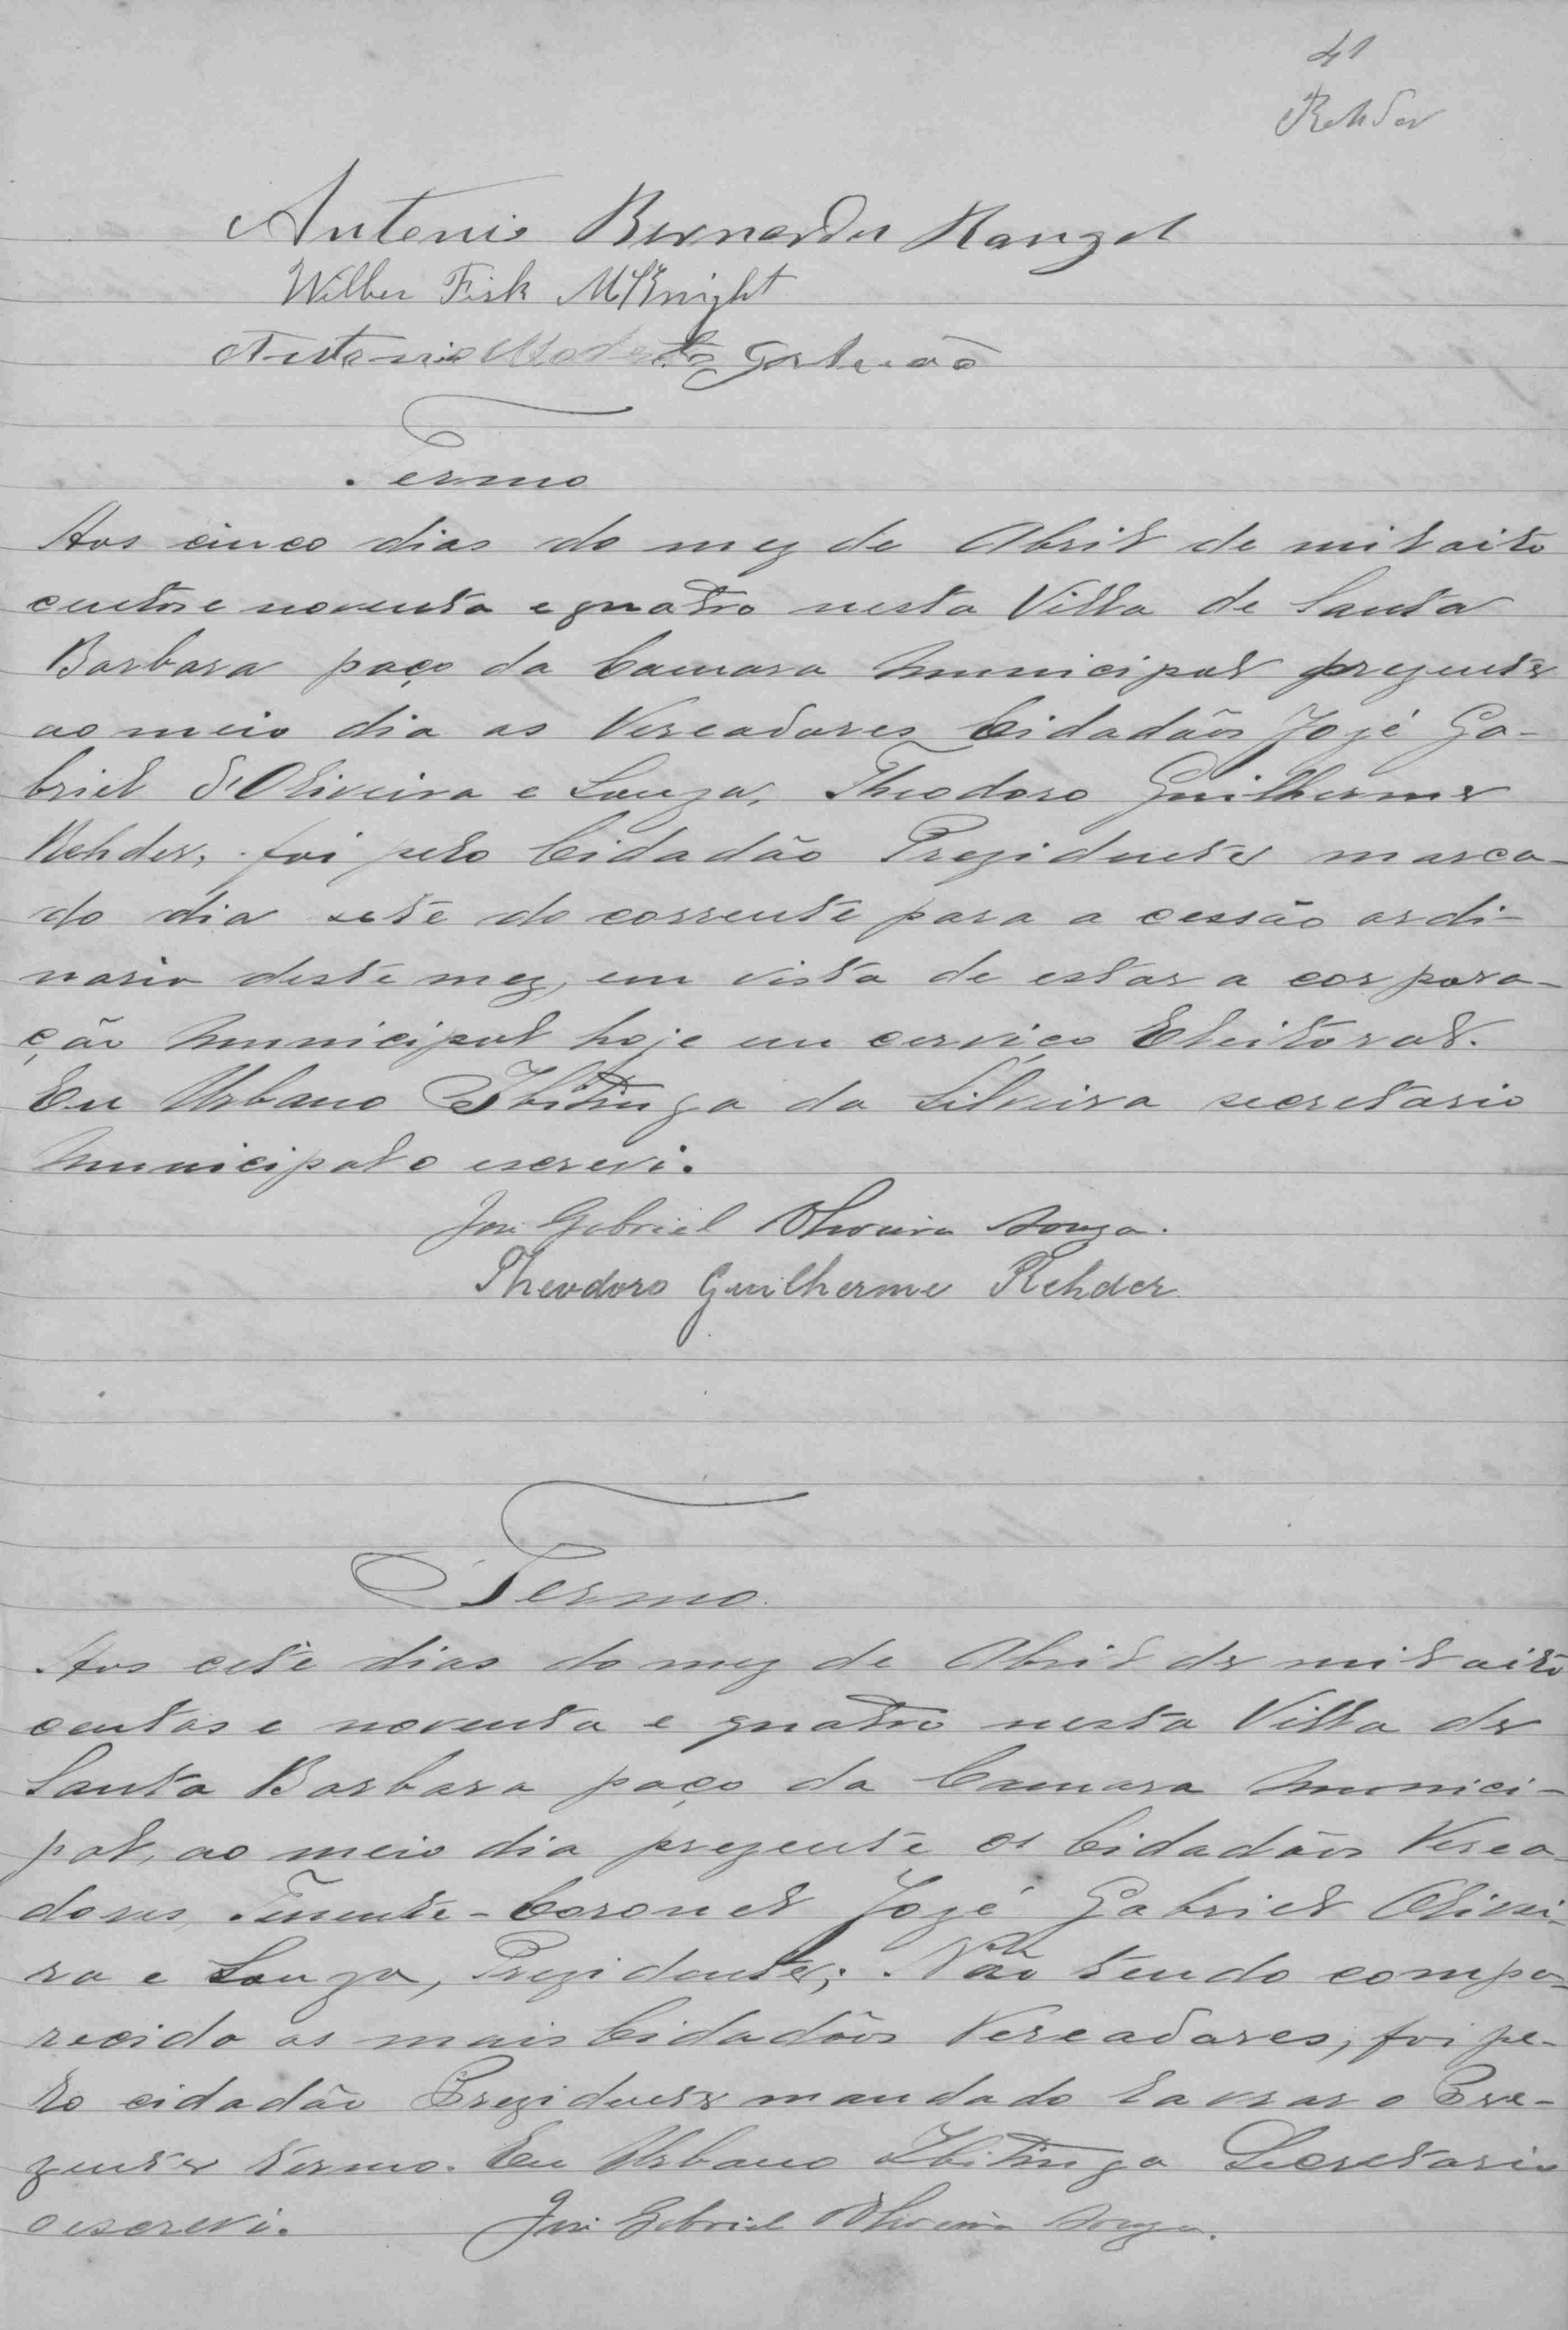 41
Rehder
Antonio Bernardes Rangel
Wilber Fisk McKnight
Antonio Modesto
Termo
Aos cinco dias do mez de Abril de mil oito
centos e noventa e quatro nesta Villa de Santa
Barbara paço da Camara Municipal prezente
ao meio dia os Vereadores Cidadãos Jozé Ga-
briel d'Oliveira e Souza, Theodoro Guilherme
Rehder, foi pelo Cidadão Prezidente marca-
do dia sete do corrente para a cessão ordi-
naria deste mez, em vista de estar a corpora-
ção Municipal hoje em cerviço Eleitoral.
Eu Urbano Ibitinga da Silveira secretario
Municipal o escrevi.
José Gabriel Oliveira Souza.
Theodoro Guilherme Rehder
Termo.
Aos cete dias do mez de Abril de mil oito
centos e noventa e quatro nesta Villa de
Santa Barbara paço da Camara Munici-
pal, ao meio dia prezente os Cidadãos Verea-
dores, Tenente-Coronel Jozé Gabriel Olivei-
ra e Souza, Prezidente; Não tendo compa-
recido os mais Cidadãos Vereadores, foi pe-
lo cidadão Prezidente mandado lavrar o Pre-
zente termo. Eu Urbano Ibitinga Secretario
o escrevi. José Gabriel Oliveira Souza.